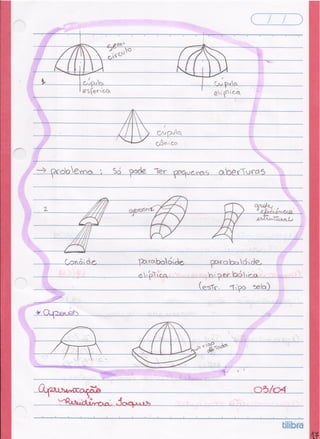 semi-
círculo
1
cúpula
esférica
cúpula
elíptica
cúpula
cônico
→ problema : Só pode Ter pequenas aberturas
2
geratriz
grande
eficiência
estrutural
Conóide
parabolóide
elíptica
parabolóide
hiperbólica
(estr. Tipo sela)
Apresentação 03/04
Residência Jaques
tilibra